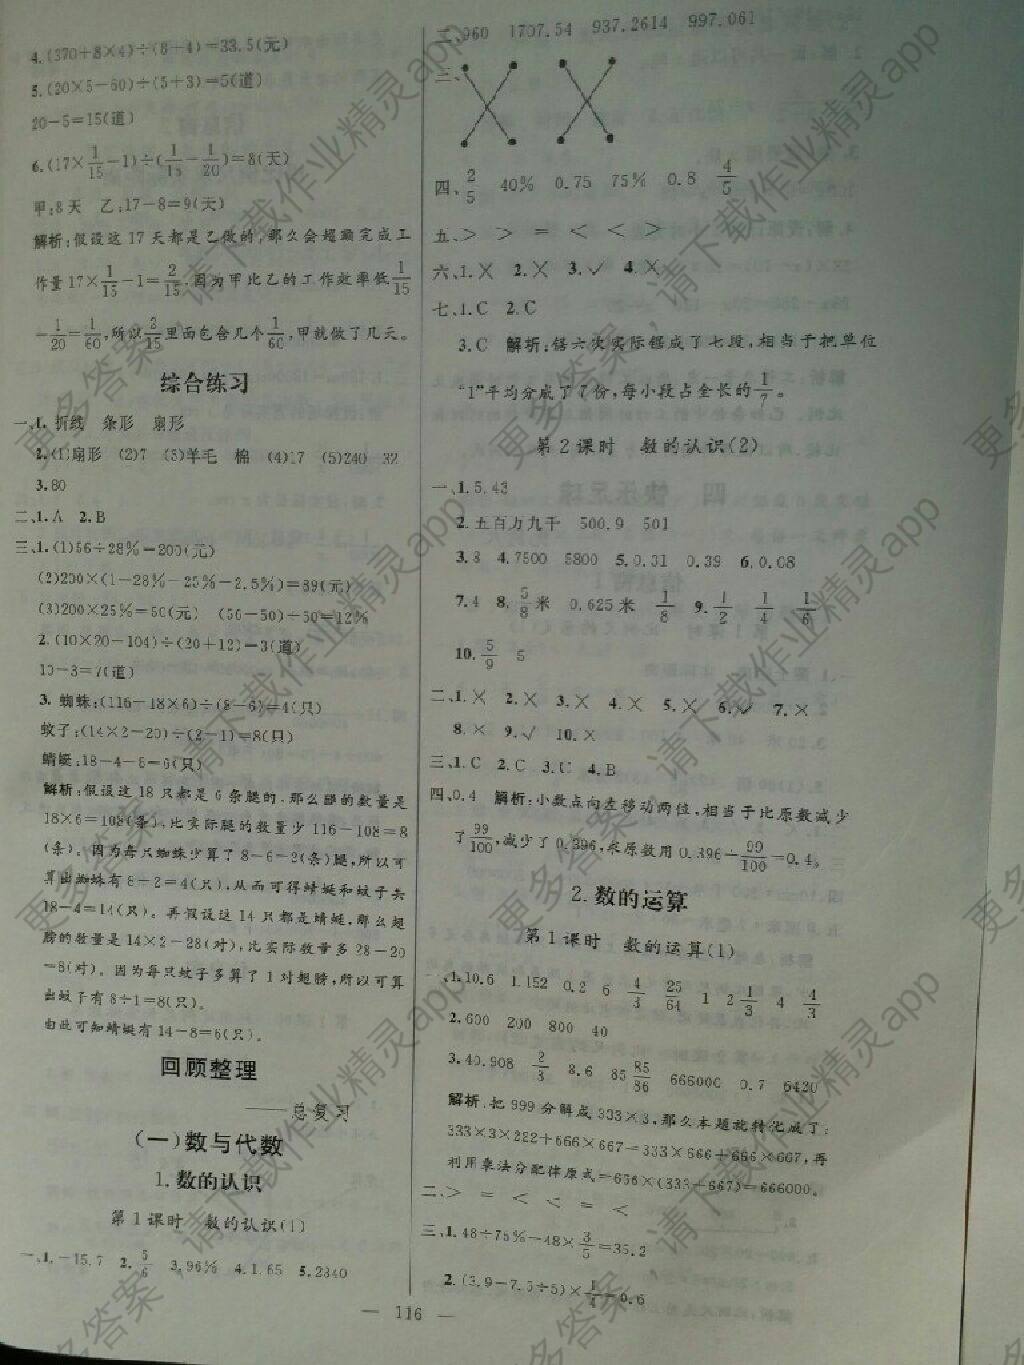 4.(370+8×4)÷(8+4)=33.5(元)
5.(20×5-60)÷(5+3)=5(道)
20-5=15(道)
6.(17×1/15-1)÷(1/15-1/20)=8(天)
甲:8天 乙:17-8=9(天)
解析:假设这17天都是乙做的,那么会超额完成工
作量17×1/15-1=2/15,因为甲比乙的工作效率低1/15
-1/20=1/60,所以2/15里面包含几个1/60,甲就做了几天。
综合练习
一、1.折线 条形 扇形
2.(1)扇形 (2)7 (3)羊毛 棉 (4)17 (5)240 32
3.80
二、1.A 2.B
三、1.(1)56÷28%=200(元)
(2)200×(1-28%-25%-2.5%)=89(元)
(3)200×25%=50(元) (56-50)÷50=12%
2.(10×20-104)÷(20+12)=3(道)
10-3=7(道)
3.蜘蛛:(116-18×6)÷(8-6)=4(只)
蚊子:(14×2-20)÷(2-1)=8(只)
蜻蜓:18-4-8=6(只)
解析:假设这18只都是6条腿的,那么腿的数量是
18×6=108(条),比实际腿的数量少116-108=8
(条)。因为每只蜘蛛少算了8-6=2(条)腿,所以可
算出蜘蛛有8÷2=4(只),从而可得蜻蜓和蚊子共
18-4=14(只)。再假设这14只都是蜻蜓,那么翅
膀的数量是14×2=28(对),比实际数量多28-20
=8(对)。因为每只蚊子多算了1对翅膀,所以可算
出蚊子有8÷1=8(只)。
由此可知蜻蜓有14-8=6(只)。
回顾整理
——总复习
(一)数与代数
1.数的认识
第1课时 数的认识(1)
一、1.-15.7 2.5/6 3.96% 4.1.65 5.2340
二、960 1707.54 937.2614 997.061
三、
四、2/5 40% 0.75 75% 0.8 4/5
五、> > = < < >
六、1.× 2.× 3.√ 4.×
七、1.C 2.C
3.C 解析:锯六次实际锯成了七段,相当于把单位
“1”平均分成了7份,每小段占全长的1/7。
第2课时 数的认识(2)
一、1.5.43
2.五百万九千 500.9 501
3.8 4.7500 6800 5.0.31 0.39 6.0.08
7.4 8.5/8米 0.625米 1/8 9.1/2 1/4 1/6
10.5/9 5
二、1.× 2.× 3.× 4.× 5.× 6.√ 7.×
8.× 9.√ 10.×
三、1.C 2.C 3.C 4.B
四、0.4 解析:小数点向左移动两位,相当于比原数减少
了99/100,减少了0.396,求原数用0.396÷99/100=0.4。
2.数的运算
第1课时 数的运算(1)
一、1.10.6 1.152 0.2 6 4/3 25/64 1 2 1/3 4 4/3
2.600 200 800 40
3.40.908 2/3 8.6 85 85/86 666000 0.7 6420
解析:把999分解成333×3,那么本题就转化成了:
333×3×222+666×667=333×666+666×667,再
利用乘法分配律原式=666×(333+667)=666000。
二、> = < < = <
三、1.48÷75%-48×3/5=35.2
2.(3.9-7.5÷5)×1/4=0.6
— 116 —
更多答案,请下载作业精灵app
更多答案,请下载作业精灵app
更多答案,请下载作业精灵app
更多答案,请下载作业精灵app
更多答案,请下载作业精灵app
更多答案,请下载作业精灵app